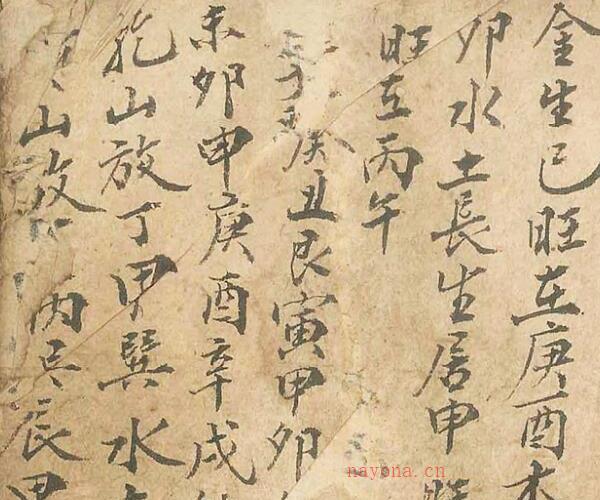 金生巳旺在庚酉木
卯水土長生居申旺
旺在丙午
癸丑艮寅甲卯
未卯申庚酉辛戌
乾山放丁甲巽水
山放 丙 辰
nayona.cn